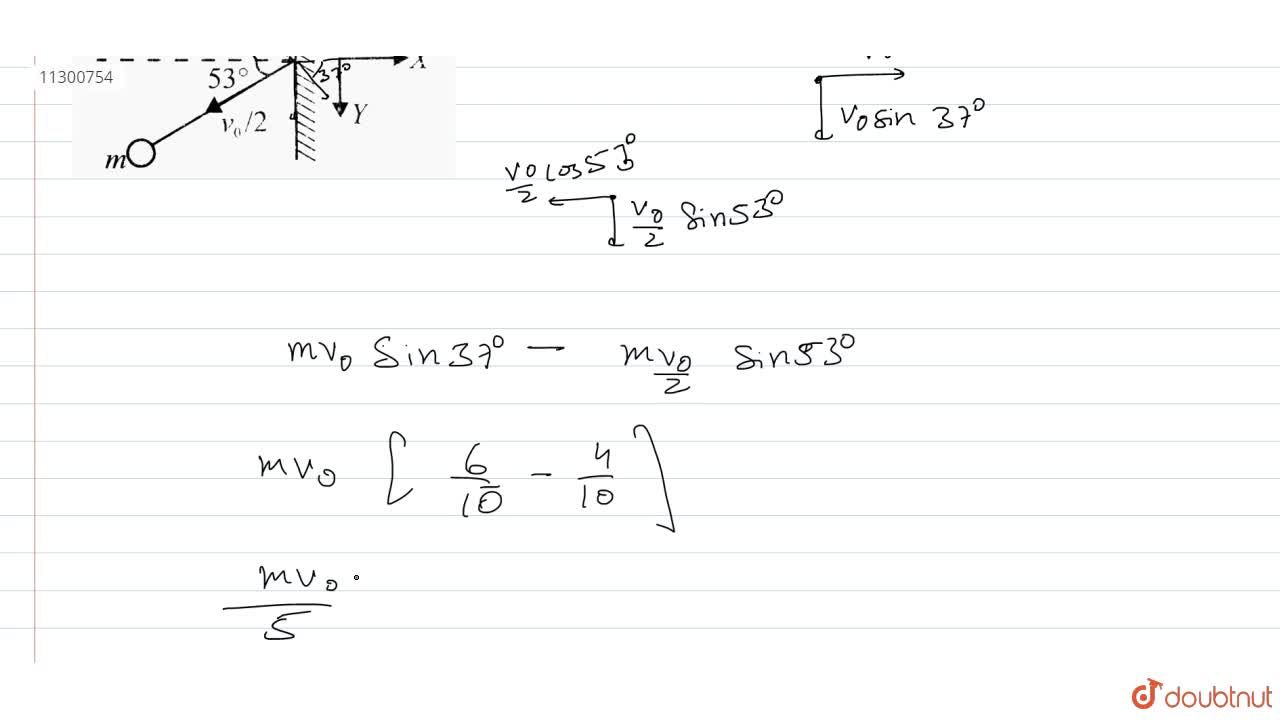 11300754
X
37°
53°
Y
v₀/2
m
v₀ sin 37°
v₀/2 cos 53°
v₀/2 sin 53°
mv₀ sin 37° − mv₀/2 sin 53°
mv₀ [ 6/10 − 4/10 ]
mv₀/5
doubtnut